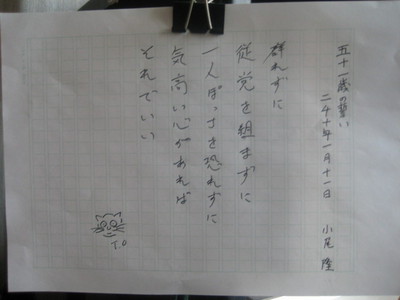 五十一歳の誓い
二千十年一月十一日 小尾 隆
群れずに
徒党を組まずに
一人ぼっちを恐れずに
気高い心があれば
それでいい
T.O